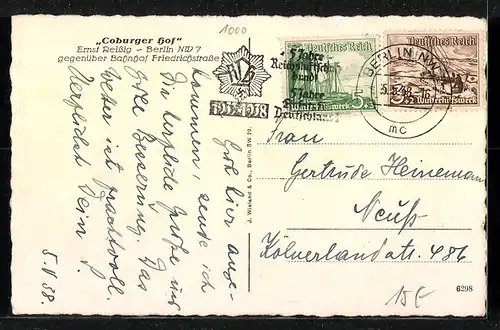 "Coburger Hof"
Ernst Reißig - Berlin NW 7
gegenüber Bahnhof Friedrichstraße
1000
RLB
1933-1938
5 Jahre
Reichsluftschutz
bund
5 Jahre
Deutschlands
Deutsches Reich
5+3
Winterhilfswerk
Deutsches Reich
3+2
Winterhilfswerk
BERLIN NW
5.5.38.-16
mc
Gut hier ange-
kommen, sende ich
Dir herzliche Grüße und
gute Besserung. Das
Wetter ist prachtvoll.
Herzlichst Dein
5.V.38.
J. Wieland & Co., Berlin SW 29.
Frau
Gertrude Heinemann
Neuß
Kölnerlandstr. 486
6298
15.-